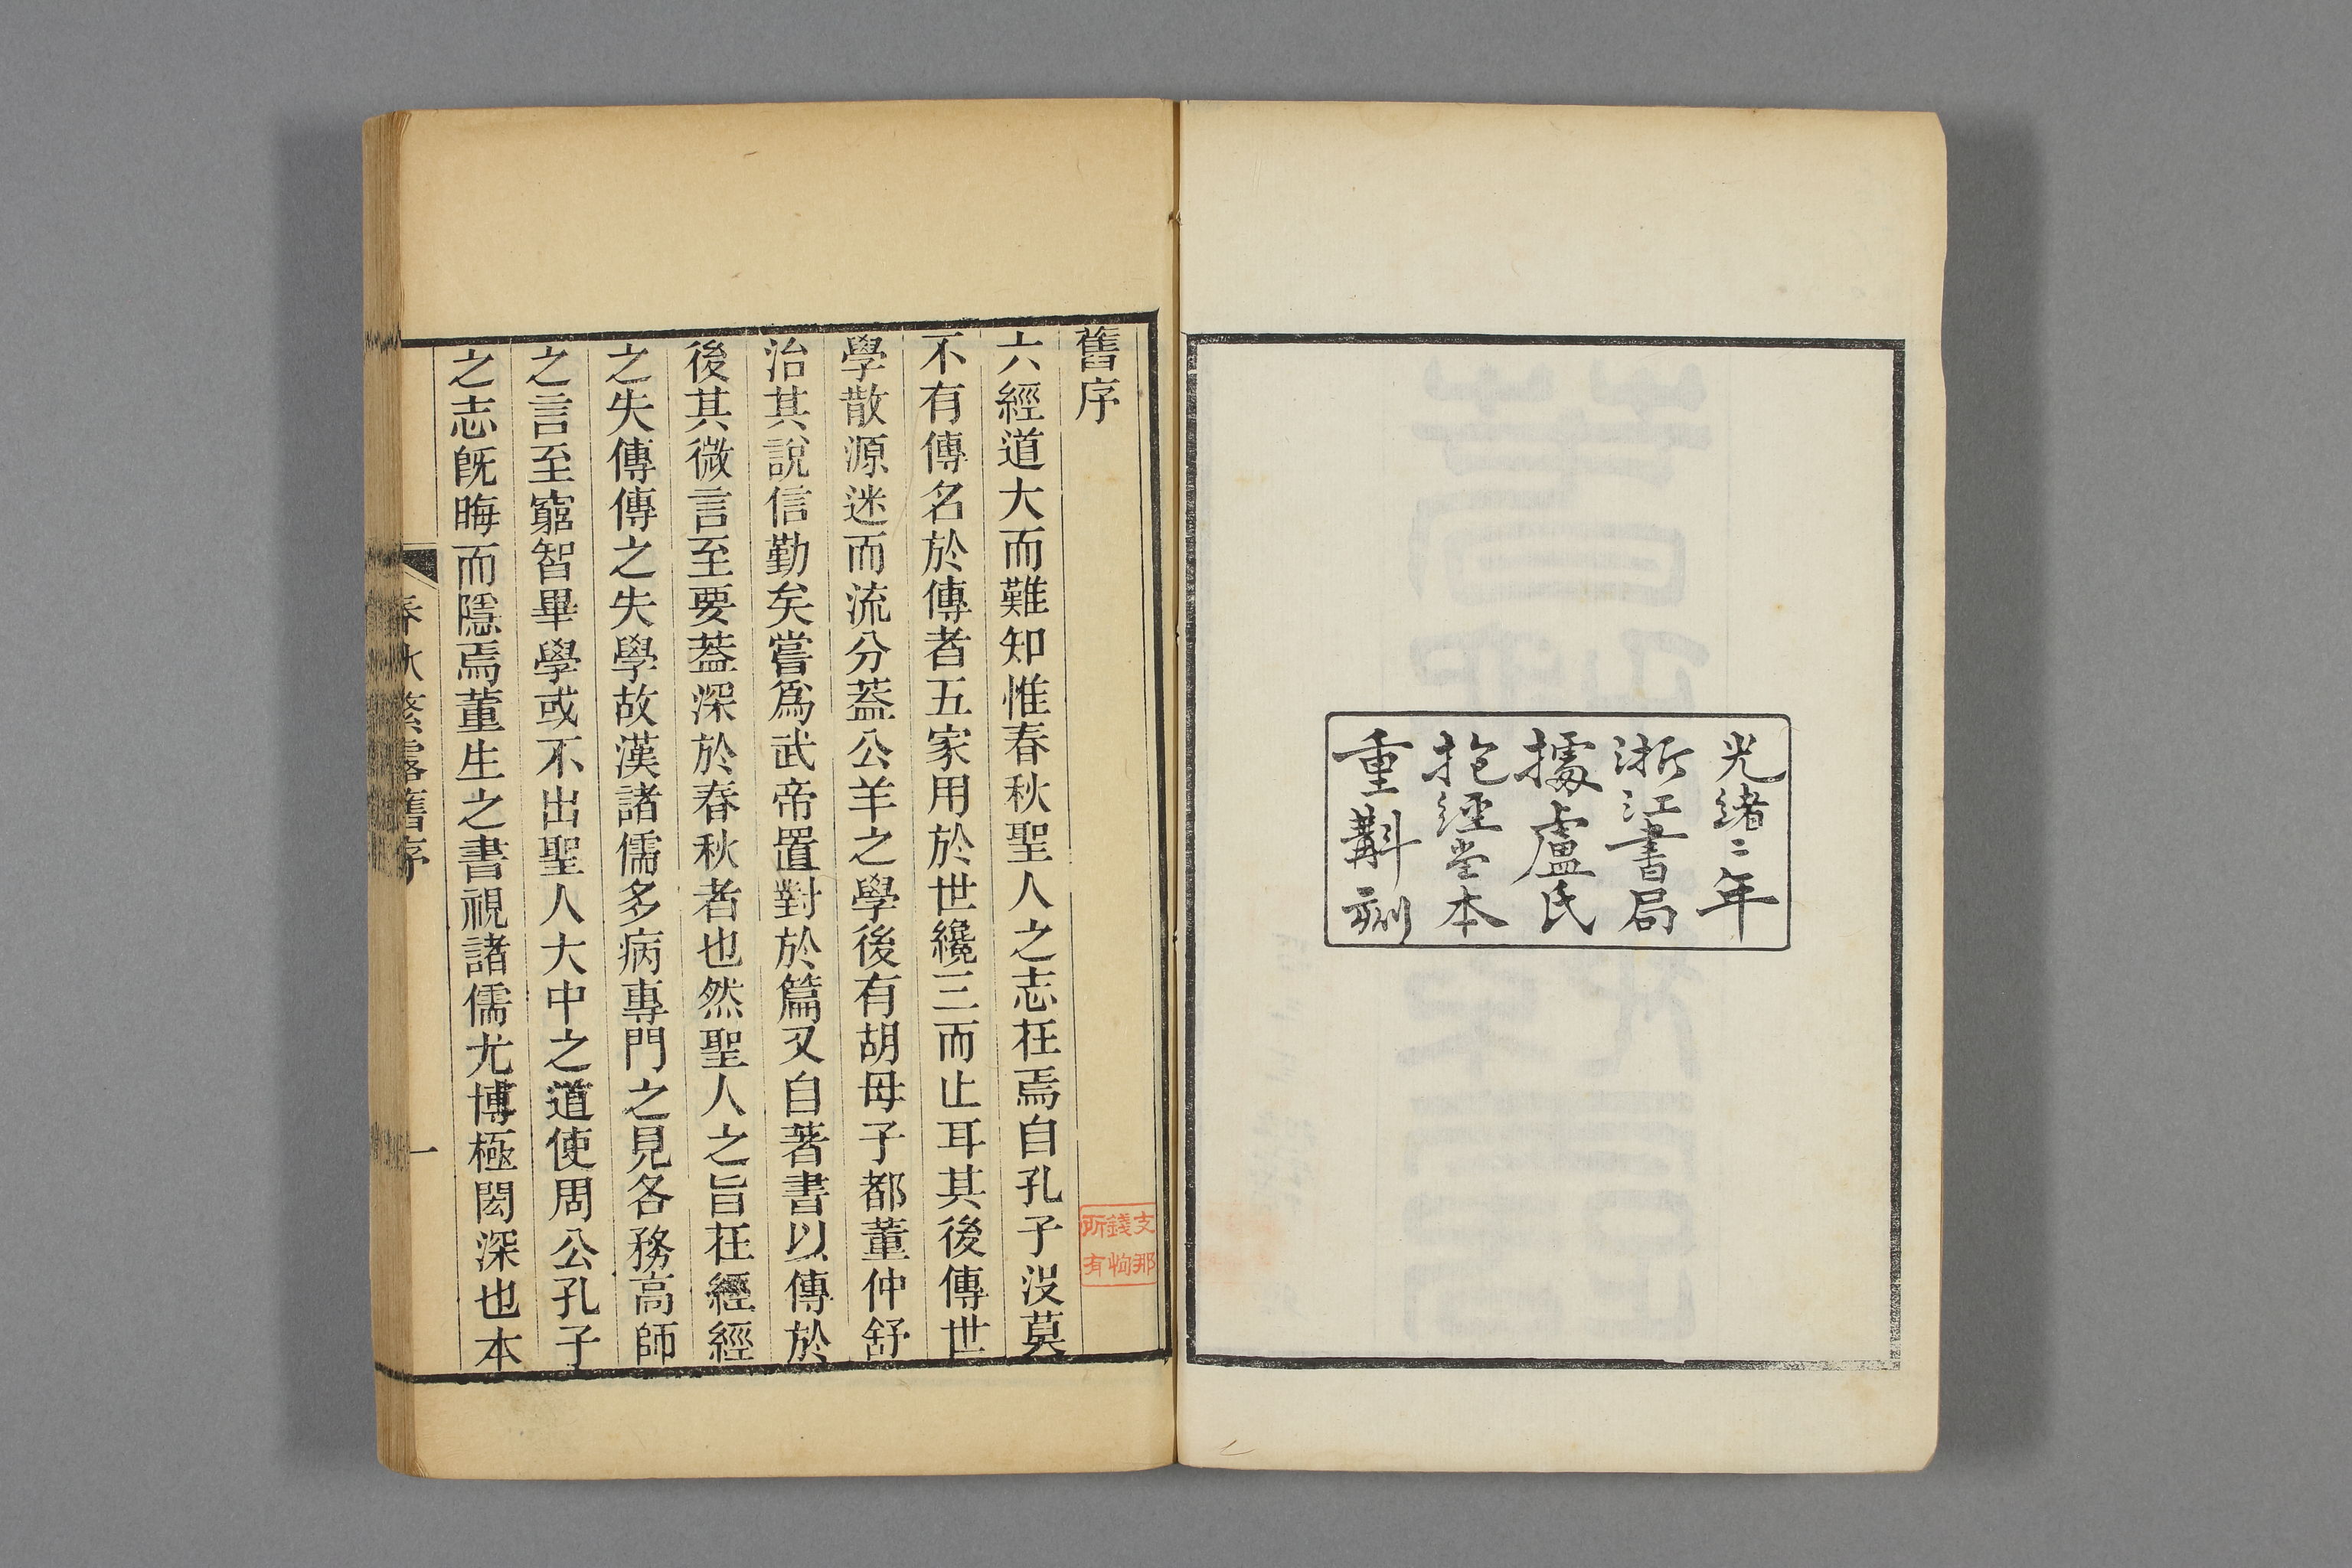 光緒二年
浙江書局
據盧氏
抱經堂本
重斠刻
舊序
六經道大而難知惟春秋聖人之志在焉自孔子沒莫
不有傳名於傳者五家用於世纔三而止耳其後傳世
學散源迷而流分蓋公羊之學後有胡母子都董仲舒
治其說信勤矣嘗爲武帝置對於篇又自著書以傳於
後其微言至要蓋深於春秋者也然聖人之旨在經經
之失傳傳之失學故漢諸儒多病專門之見各務高師
之言至窮智畢學或不出聖人大中之道使周公孔子
之志旣晦而隱焉董生之書視諸儒尤博極閎深也本
春秋繁露舊序
一
支那
錢恂
所有